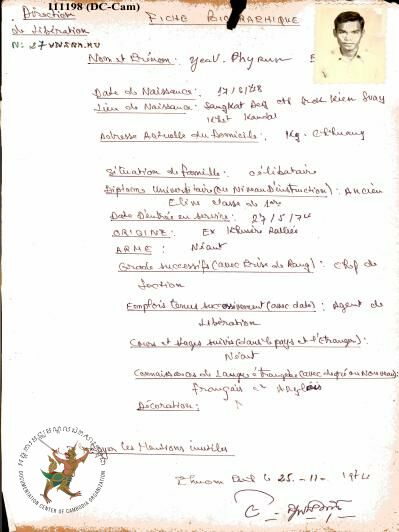 L11198 (DC-Cam)
Direction
de Libération
FICHE BIOGRAPHIQUE
Nom et Prénom: Yeav. Phyrun
Date de Naissance: 17/8/48
Lieu de Naissance: Sangkat Srok Kien Svay
Khet Kandal
Adresse Actuelle du domicile: Kg. Chhnang
Situation de famille: célibataire
Diplome Universitaire (ou Niveau D'instruction): Ancien
Elève classe de 1ère
Date D'entrée en service: 27/5/74
ORIGINE: EX Khmère Ralliée
ARME: Néant
Grade successifs (avec Prise de Rang): Chef de
Section
Emplois tenus successivement (avec date): Agent de
Libération
Cours et stages suivis (dans le pays et l'Etranger):
Néant
Connaissances de Langue étrangère (avec degré ou Nouveau):
français Anglais
Décoration:
les Mentions inutiles
25-11-1974
DOCUMENTATION CENTER OF CAMBODIA ORGANIZATION